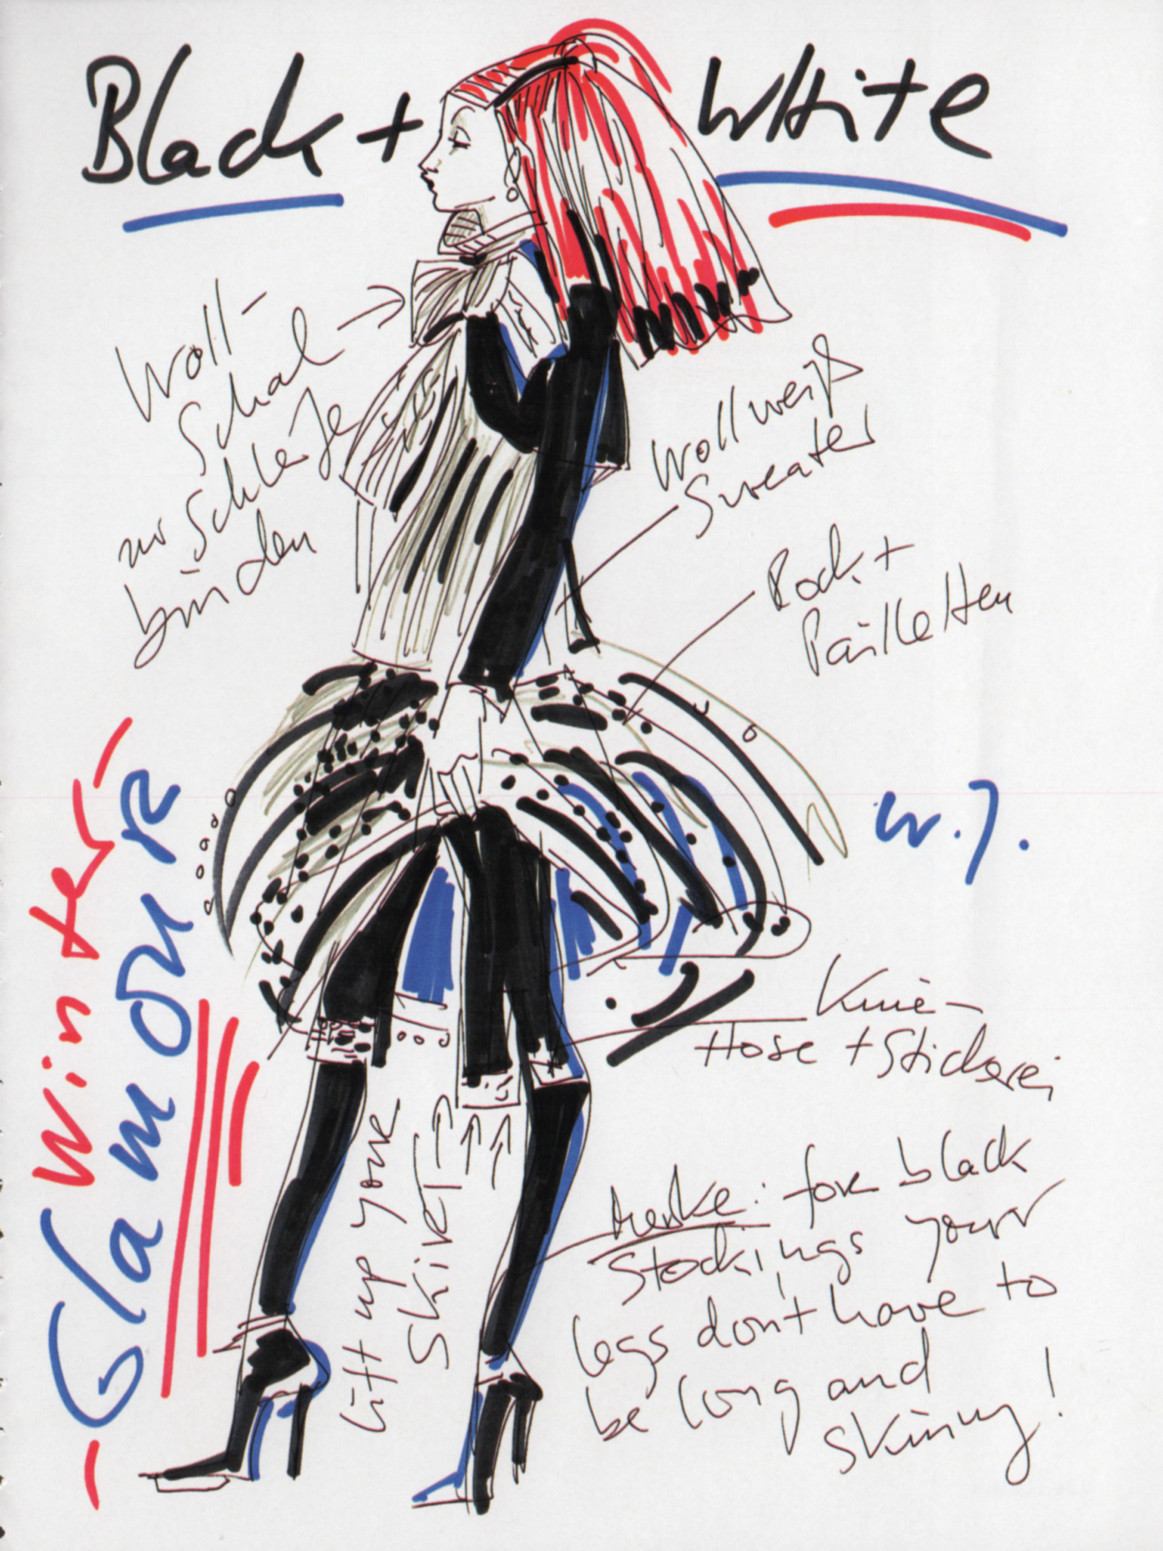 Black + White
Woll-
Schal
zur Schleife
binden
Wollweiß
Sweater
Rock +
Pailletten
Winter-
Glamour
W.J.
Knie-
Hose + Stickerei
Lift up your
Skirt
Merke: for black
stockings your
legs don't have to
be long and
skinny!